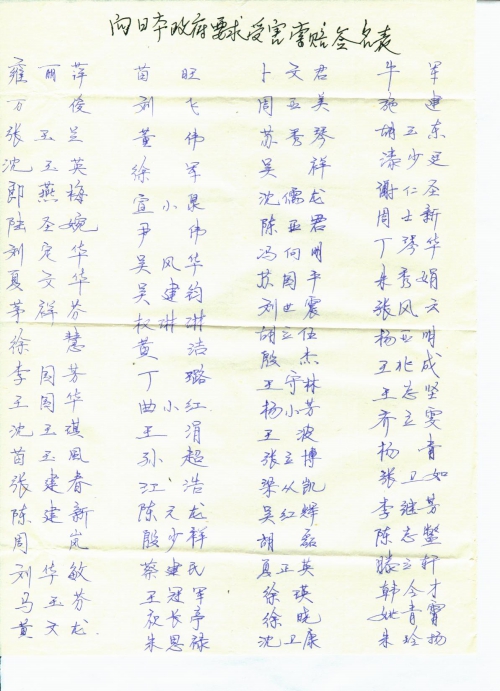 向日本政府要求受害索赔签名表
雍丽萍
万俊
张玉兰
沈玉英
郎燕梅
陆圣婉
刘定华
夏文华
茅群芬
徐慧
李国芳
王国华
沈玉琪
苗玉凤
张建春
陈建新
周岚
刘华敏
马玉芬
黄文龙
苗旺
刘飞
黄伟
徐军
宣小泉
尹伟
吴风华
吴建钧
权琳琳
黄洁
丁璐
曲小红
王涓
孙超
江浩
陈元龙
殷少祥
蔡建民
王冠军
长亭
朱恩禄
卜文君
周亚美
苏秀琴
吴祥
沈儒龙
陈亚君
冯向明
苏国平
刘世震
胡立伍
殷杰
王守林
杨小芳
王波
张立博
梁从凯
吴红辉
胡磊
夏正英
徐瑛
徐晓
沈卫康
牛军
施建
胡卫东
漆少廷
谢仁圣
周士新
丁琴华
朱秀娟
张风云
杨亚明
王兆成
王志坚
齐立雯
杨青
张卫如
李继芳
陈志
滕立轩
韩今才
姚青霄
朱玲扬